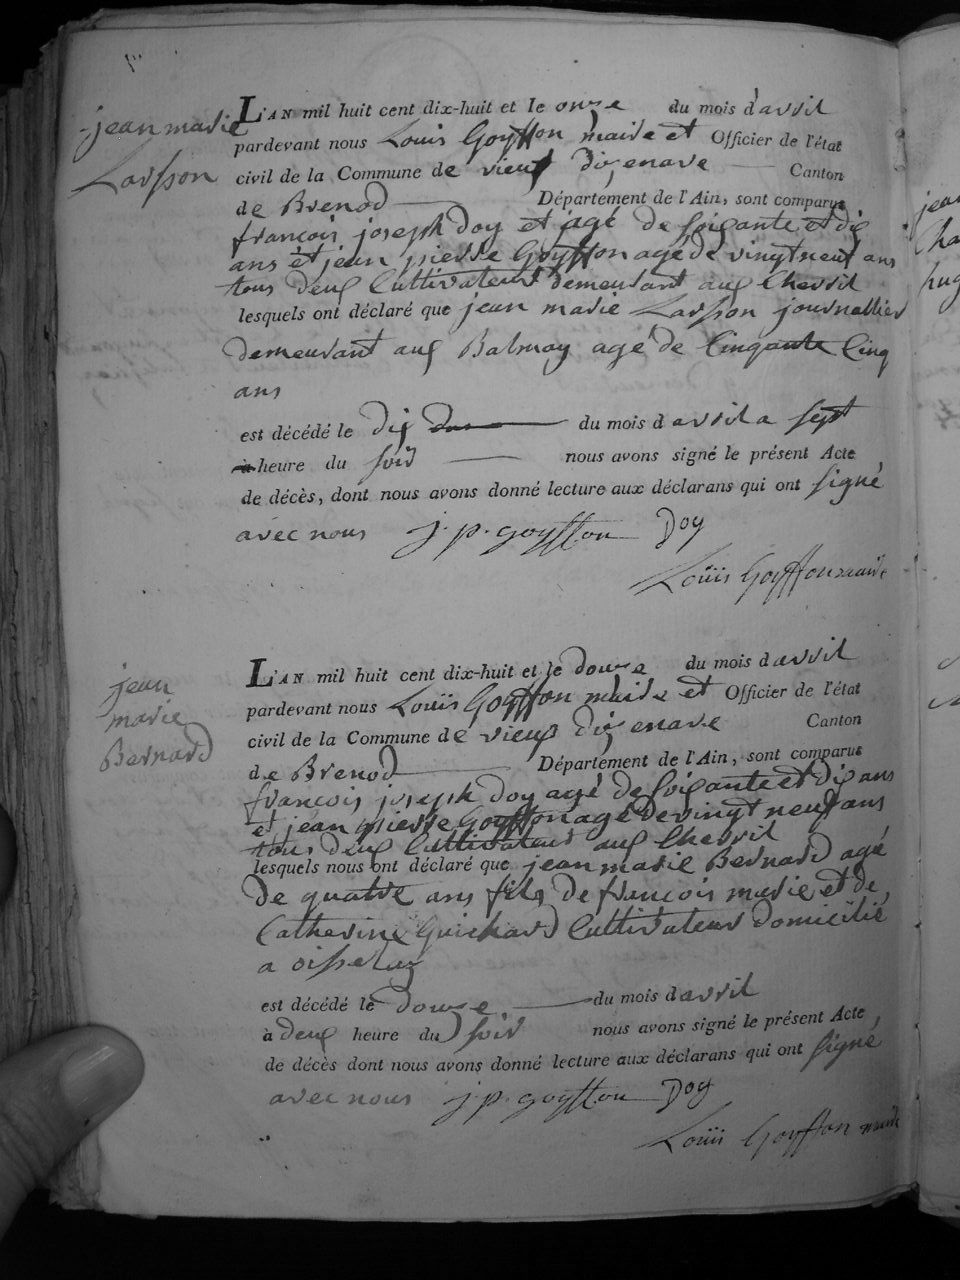 jean marie
Larsson
L'AN mil huit cent dix-huit et le onze du mois d'avril
pardevant nous Louis Goyffon maire et Officier de l'état
civil de la Commune de vieux diz enave Canton
de Brenod Département de l'Ain, sont comparus
françois joseph Doy et agé de soixante et dix
ans et jean pierre Goyffon agé de vingt neuf ans
tous deux Cultivateurs demeurant aux Chevril
lesquels ont déclaré que jean marie Larsson journallier
demeurant aux Balmay agé de Cinquante Cinq
ans
est décédé le dix du mois d avril a sept
à heure du soir nous avons signé le présent Acte
de décès, dont nous avons donné lecture aux déclarans qui ont signé
avec nous j. p. goyffon Doy
Louis Goyffon maire
jean
marie
Bernard
L'AN mil huit cent dix-huit et le douze du mois d avril
pardevant nous Louis Goyffon maire et Officier de l'état
civil de la Commune de vieux diz enave Canton
de Brenod Département de l'Ain, sont comparus
françois joseph Doy agé de soixante et dix ans
et jean pierre Goyffon agé de vingt neuf ans
tous deux Cultivateurs aux Chevril
lesquels nous ont déclaré que jean marie Bernard agé
De quatre ans fils de françois marie et de
Catherine Guichard Cultivateur domicilié
a oisselaz
est décédé le douze du mois d avril
à deux heure du soir nous avons signé le présent Acte
de décès dont nous avons donné lecture aux déclarans qui ont signé
avec nous j. p. goyffon Doy
Louis Goyffon maire
jean
Cha
hug